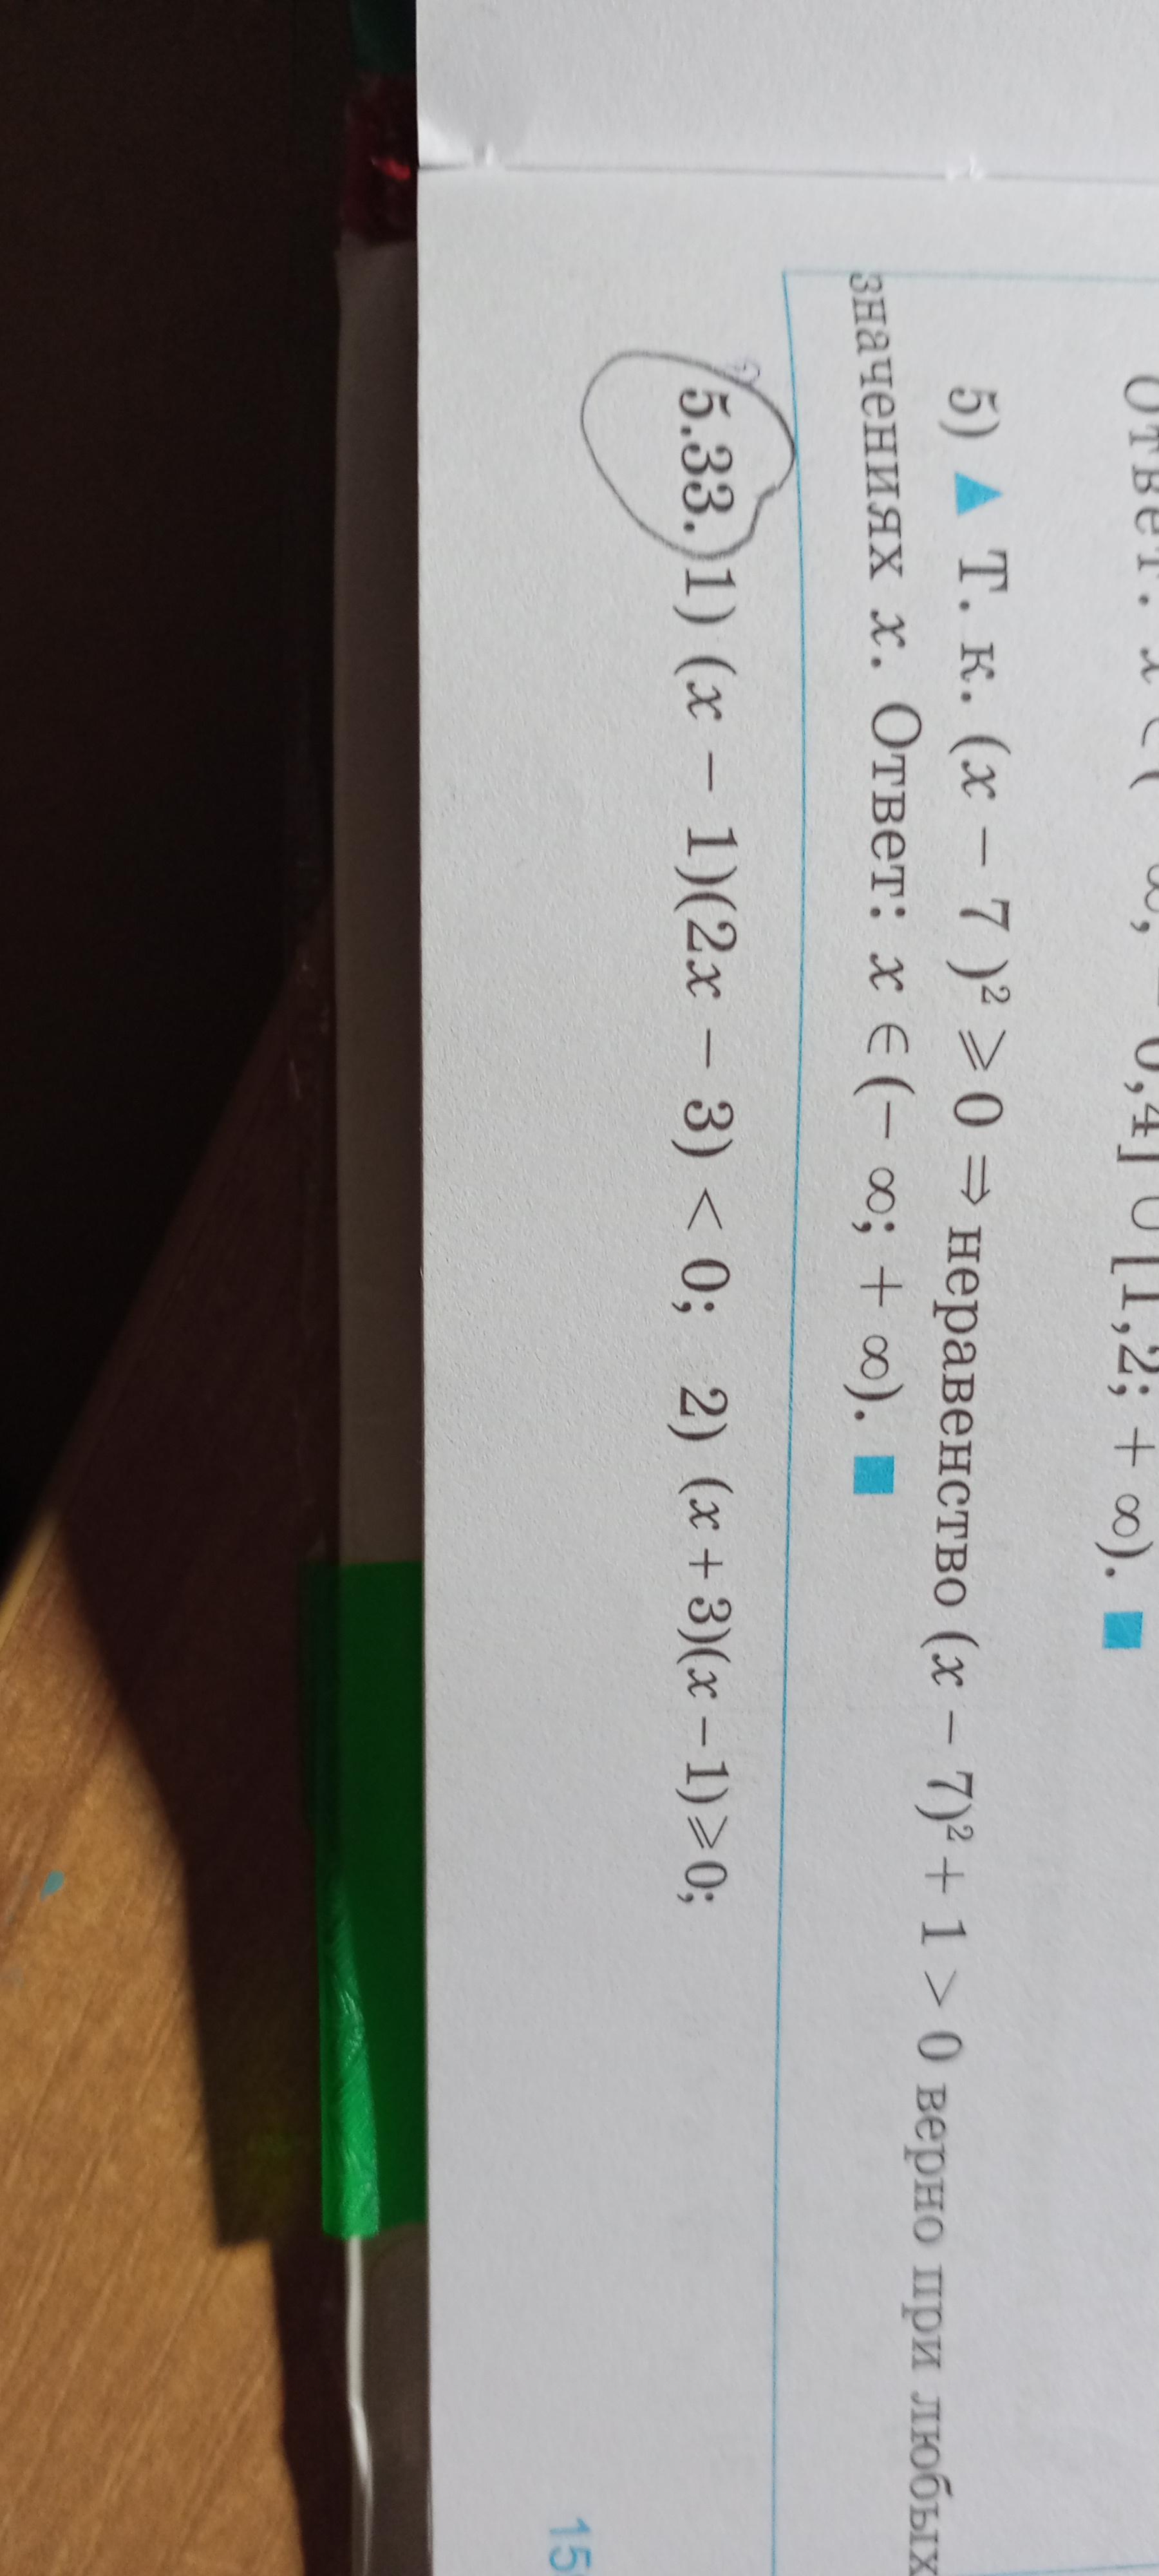 5) ▲ Т. к. (x − 7 )² ⩾ 0 ⇒ неравенство (x − 7)² + 1 > 0 верно при любых
значениях x. Ответ: x ∈ (− ∞; + ∞). ■
5.33. 1) (x − 1)(2x − 3) < 0; 2) (x + 3)(x − 1) ⩾ 0;